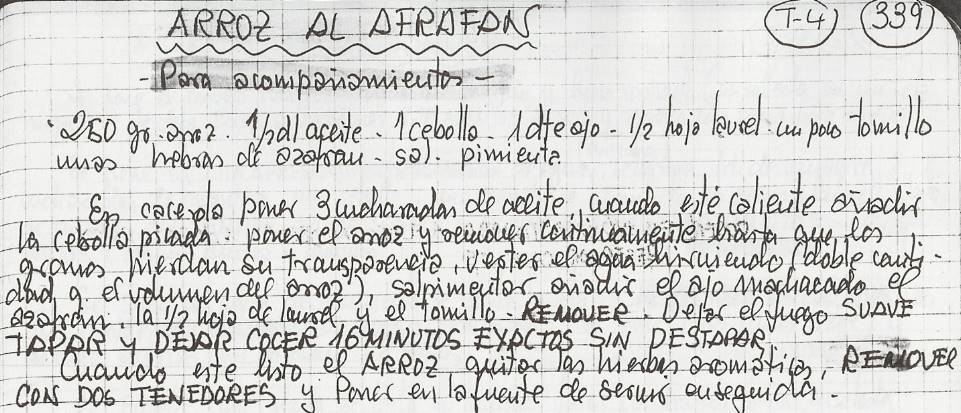 ARROZ AL AFRAFAN T-4 339
- Para acompañamientos -
250 gr. arroz. 1/2 dl aceite - 1 cebolla - 1 dte ajo - 1/2 hoja laurel. un poco tomillo
unas hebras de azafran - sal. pimienta
En cacerola poner 3 cucharadas de aceite, cuando esté caliente añadir
la cebolla picada. poner el arroz y remover continuamente hasta que los
granos pierdan su transparencia, verter el agua hirviendo (doble canti-
dad q. el volumen del arroz), salpimentar añadir el ajo machacado el
azafran, la 1/2 hoja de laurel y el tomillo. REMOVER. Dejar el fuego SUAVE
TAPAR y DEJAR COCER 16 MINUTOS EXACTOS SIN DESTAPAR
Cuando este listo el ARROZ, quitar las hierbas aromáticas, REMOVER
CON DOS TENEDORES y Poner en la fuente de servir enseguida.